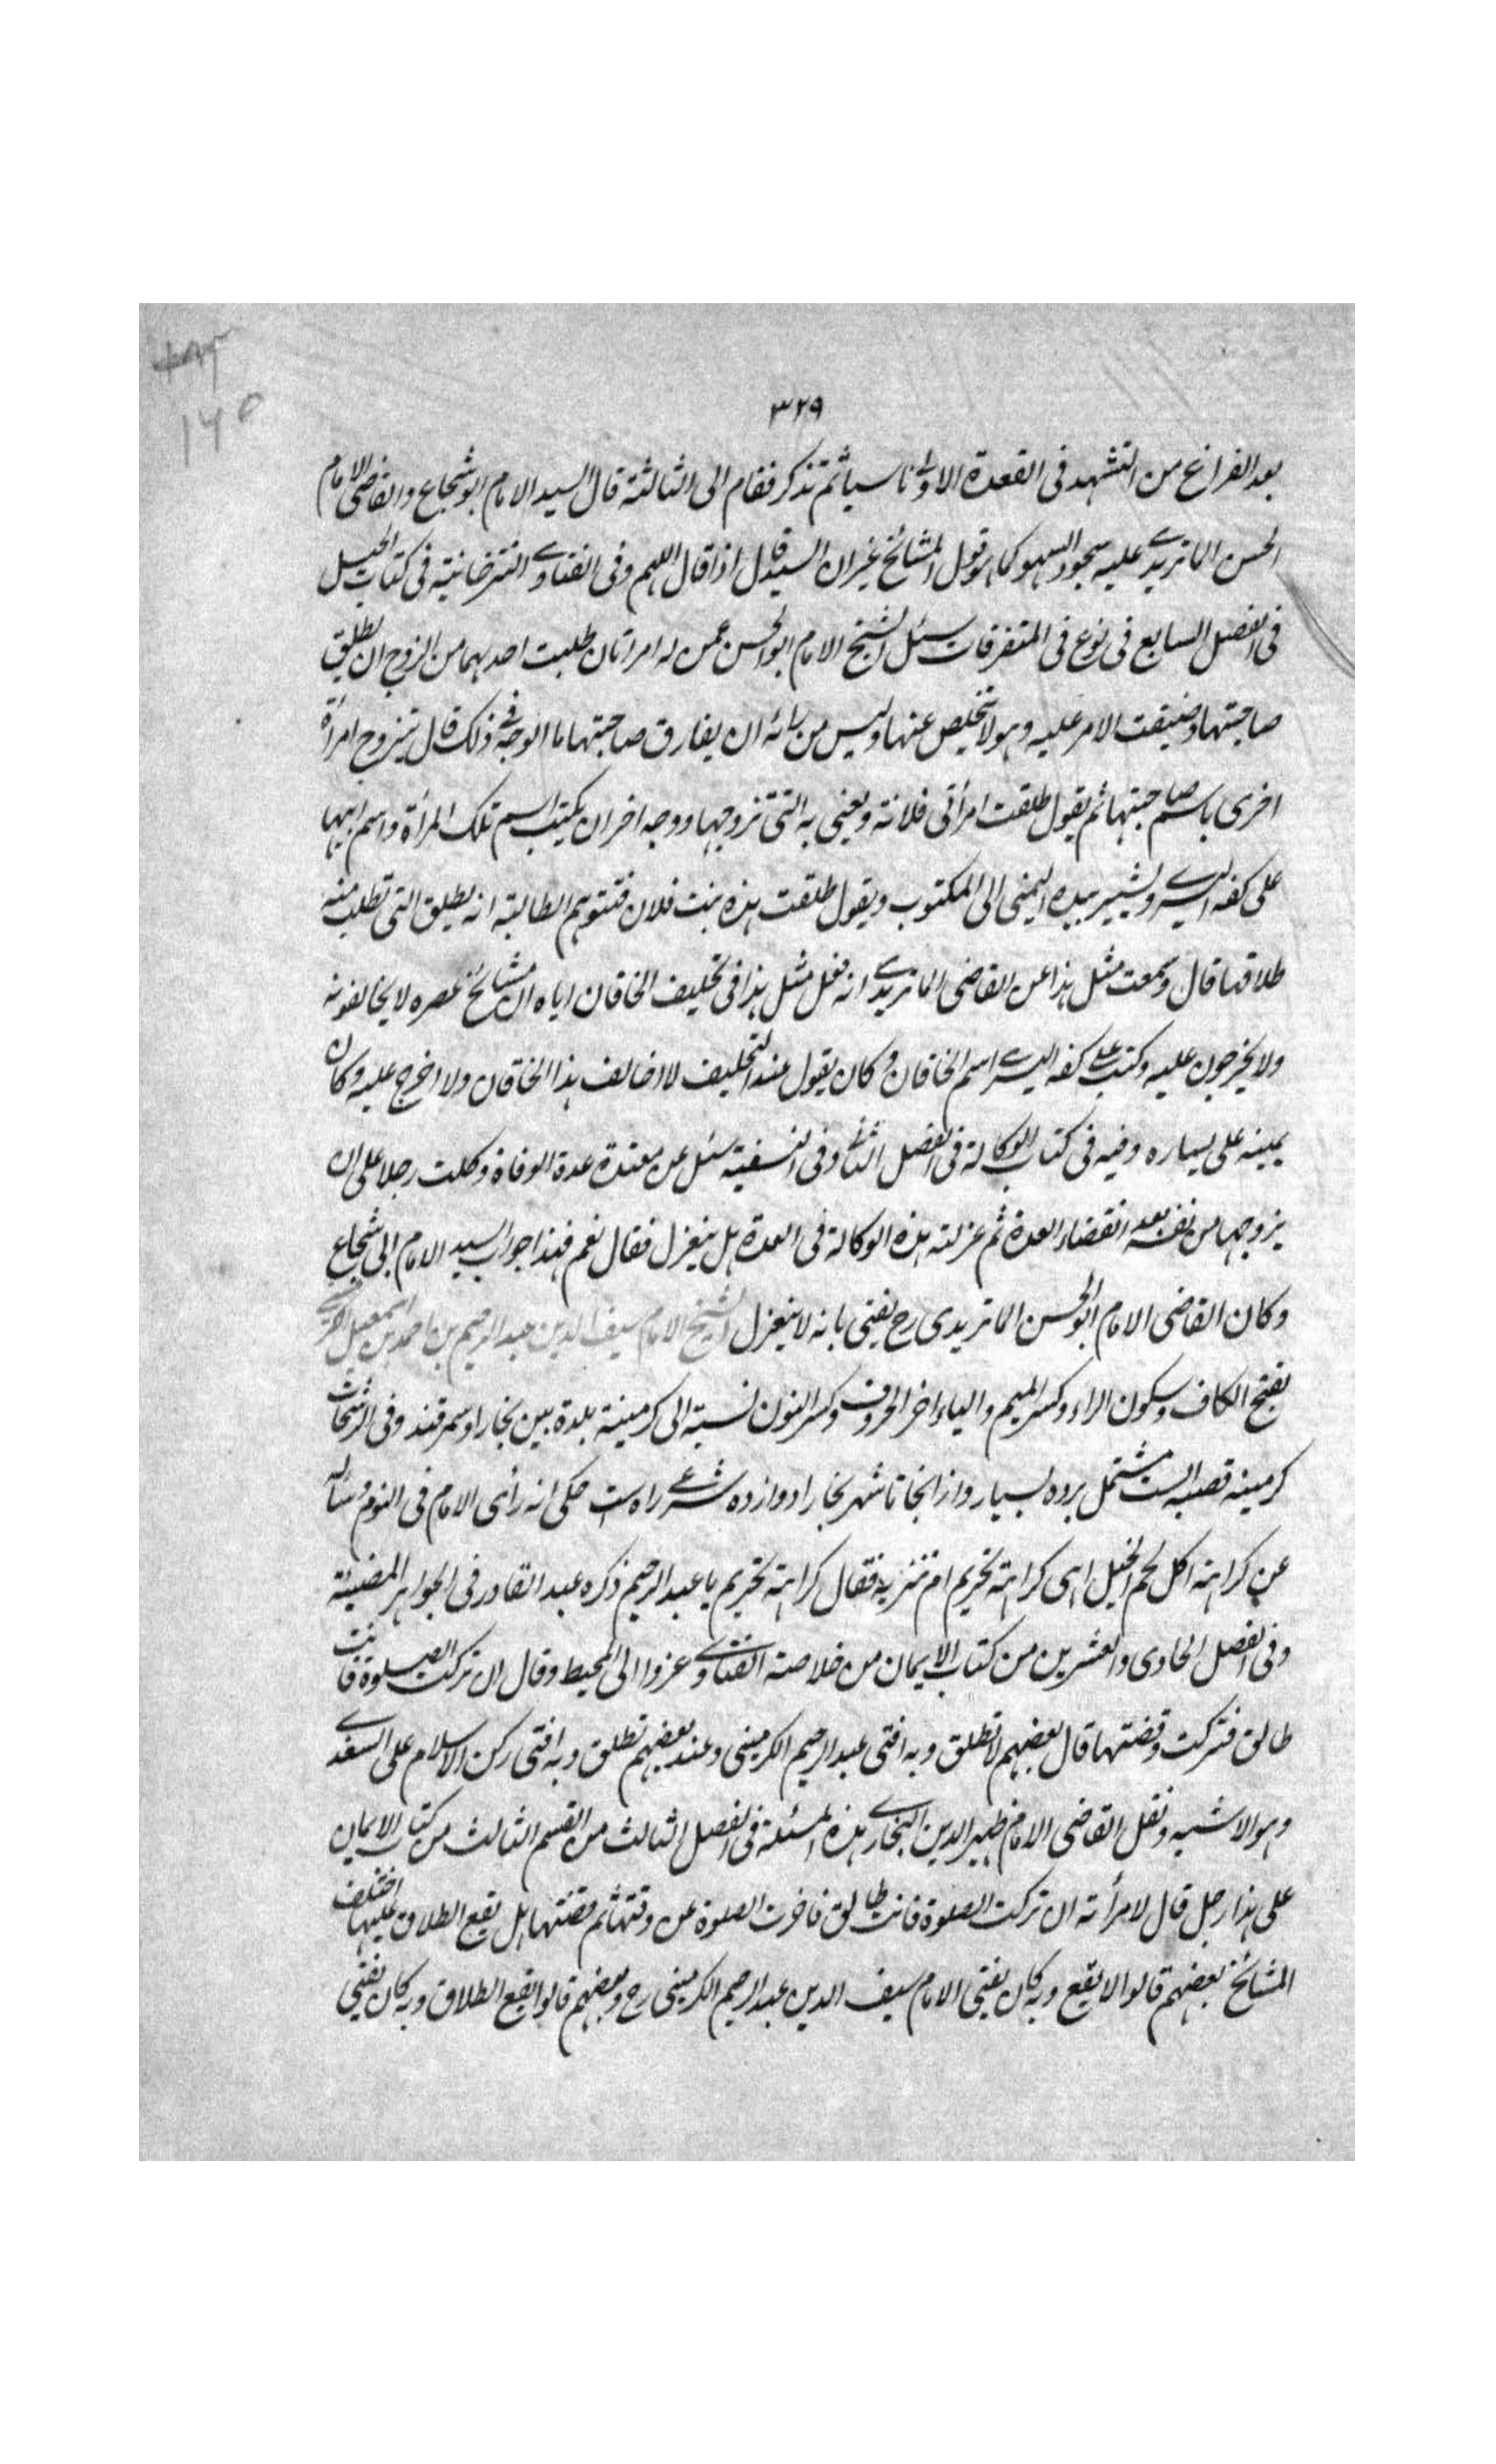 ٣٢٩
١٦٥
بعد الفراغ من التشهد فى القعدة الاولى ناسيا ثم تذكر فقام الى الثالثة قال السيد الامام ابو شجاع والقاضى الامام
الحسن الماتريدى عليه سجود السهو كما هو قول المشائخ غير ان السيد قال اذا قال اللهم وفى الفتاوى التترخانية فى كتاب الحيل
فى الفصل السابع فى نوع فى المتفرقات سئل الشيخ الامام ابو الحسن عمن له امرأتان طلبت احدهما من الزوج ان يطلق
صاحبتها وضيقت الامر عليه وهو لا تخلص عنها وليس من رائه ان يفارق صاحبتها ما الوجه فى ذلك قال يتزوج امرأة
اخرى باسم صاحبتها ثم يقول طلقت امرأتى فلانة ويعنى به التى تزوجها ووجه اخر ان يكتب اسم تلك المرأة واسم ابيها
على كفه اليسرى ويشير بيده اليمنى الى المكتوب ويقول طلقت هذه بنت فلان فتتوهم الطالبة انه يطلق التى تطلب منه
طلاقها قال وسمعت مثل هذا عن القاضى الماتريدى انه فعل مثل هذا فى تحليف الخاقان اياه ان مشائخ عصره لا يخالفونه
ولا يخرجون عليه وكتب على كفه اليسرى اسم الخاقان وكان يقول عند التحليف لا اخالف هذا الخاقان ولا اخرج عليه وكان
يمينه على يساره وفيه فى كتاب الوكالة فى الفصل الثانى وفى النسفية سئل عن معتدة عدة الوفاة وكلت رجلا على ان
يزوجها من نفسه بعد انقضاء العدة ثم عزلته هذه الوكالة فى العدة هل ينعزل فقال نعم فهذا جواب السيد الامام ابى شجاع
وكان القاضى الامام ابو الحسن الماتريدى رح يفتى بانه لا ينعزل الشيخ الامام سيف الدين عبد الرحيم بن احمد بن اسمعيل الكرمينى
بفتح الكاف وسكون الراء وكسر الميم والياء اخر الحروف وكسر النون نسبة الى كرمينة بلدة بين بخارا وسمرقند وفى الرشحات
كرمينه قصبه است مشتمل برده بسيار واز انجا تا شهر بخارا دوازده شرعى راه است حكى انه رأى الامام فى النوم وسأله
عن كراهة اكل لحم الخيل اهى كراهة تحريم ام تنزيه فقال كراهة تحريم يا عبد الرحيم ذكره عبد القادر فى الجواهر المضيئة
وفى الفصل الحادى والعشرين من كتاب الايمان من خلاصة الفتاوى عزوا الى المحيط وقال ان تركت الصلوة فانت
طالق فتركت وقضتها قال بعضهم لا تطلق وبه افتى عبد الرحيم الكرمينى وعند بعضهم تطلق وبه افتى ركن الاسلام على السغدى
وهو الاشبه ونقل القاضى الامام ظهير الدين البخارى هذه المسئلة فى الفصل الثالث من القسم الثالث من كتاب الايمان
على هذا رجل قال لامرأته ان تركت الصلوة فانت طالق فاخرت الصلوة عن وقتها ثم قضتها هل يقع الطلاق عليها اختلف
المشائخ بعضهم قالوا لا يقع وبه كان يفتى الامام سيف الدين عبد الرحيم الكرمينى رح وبعضهم قالوا يقع الطلاق وبه كان يفتى